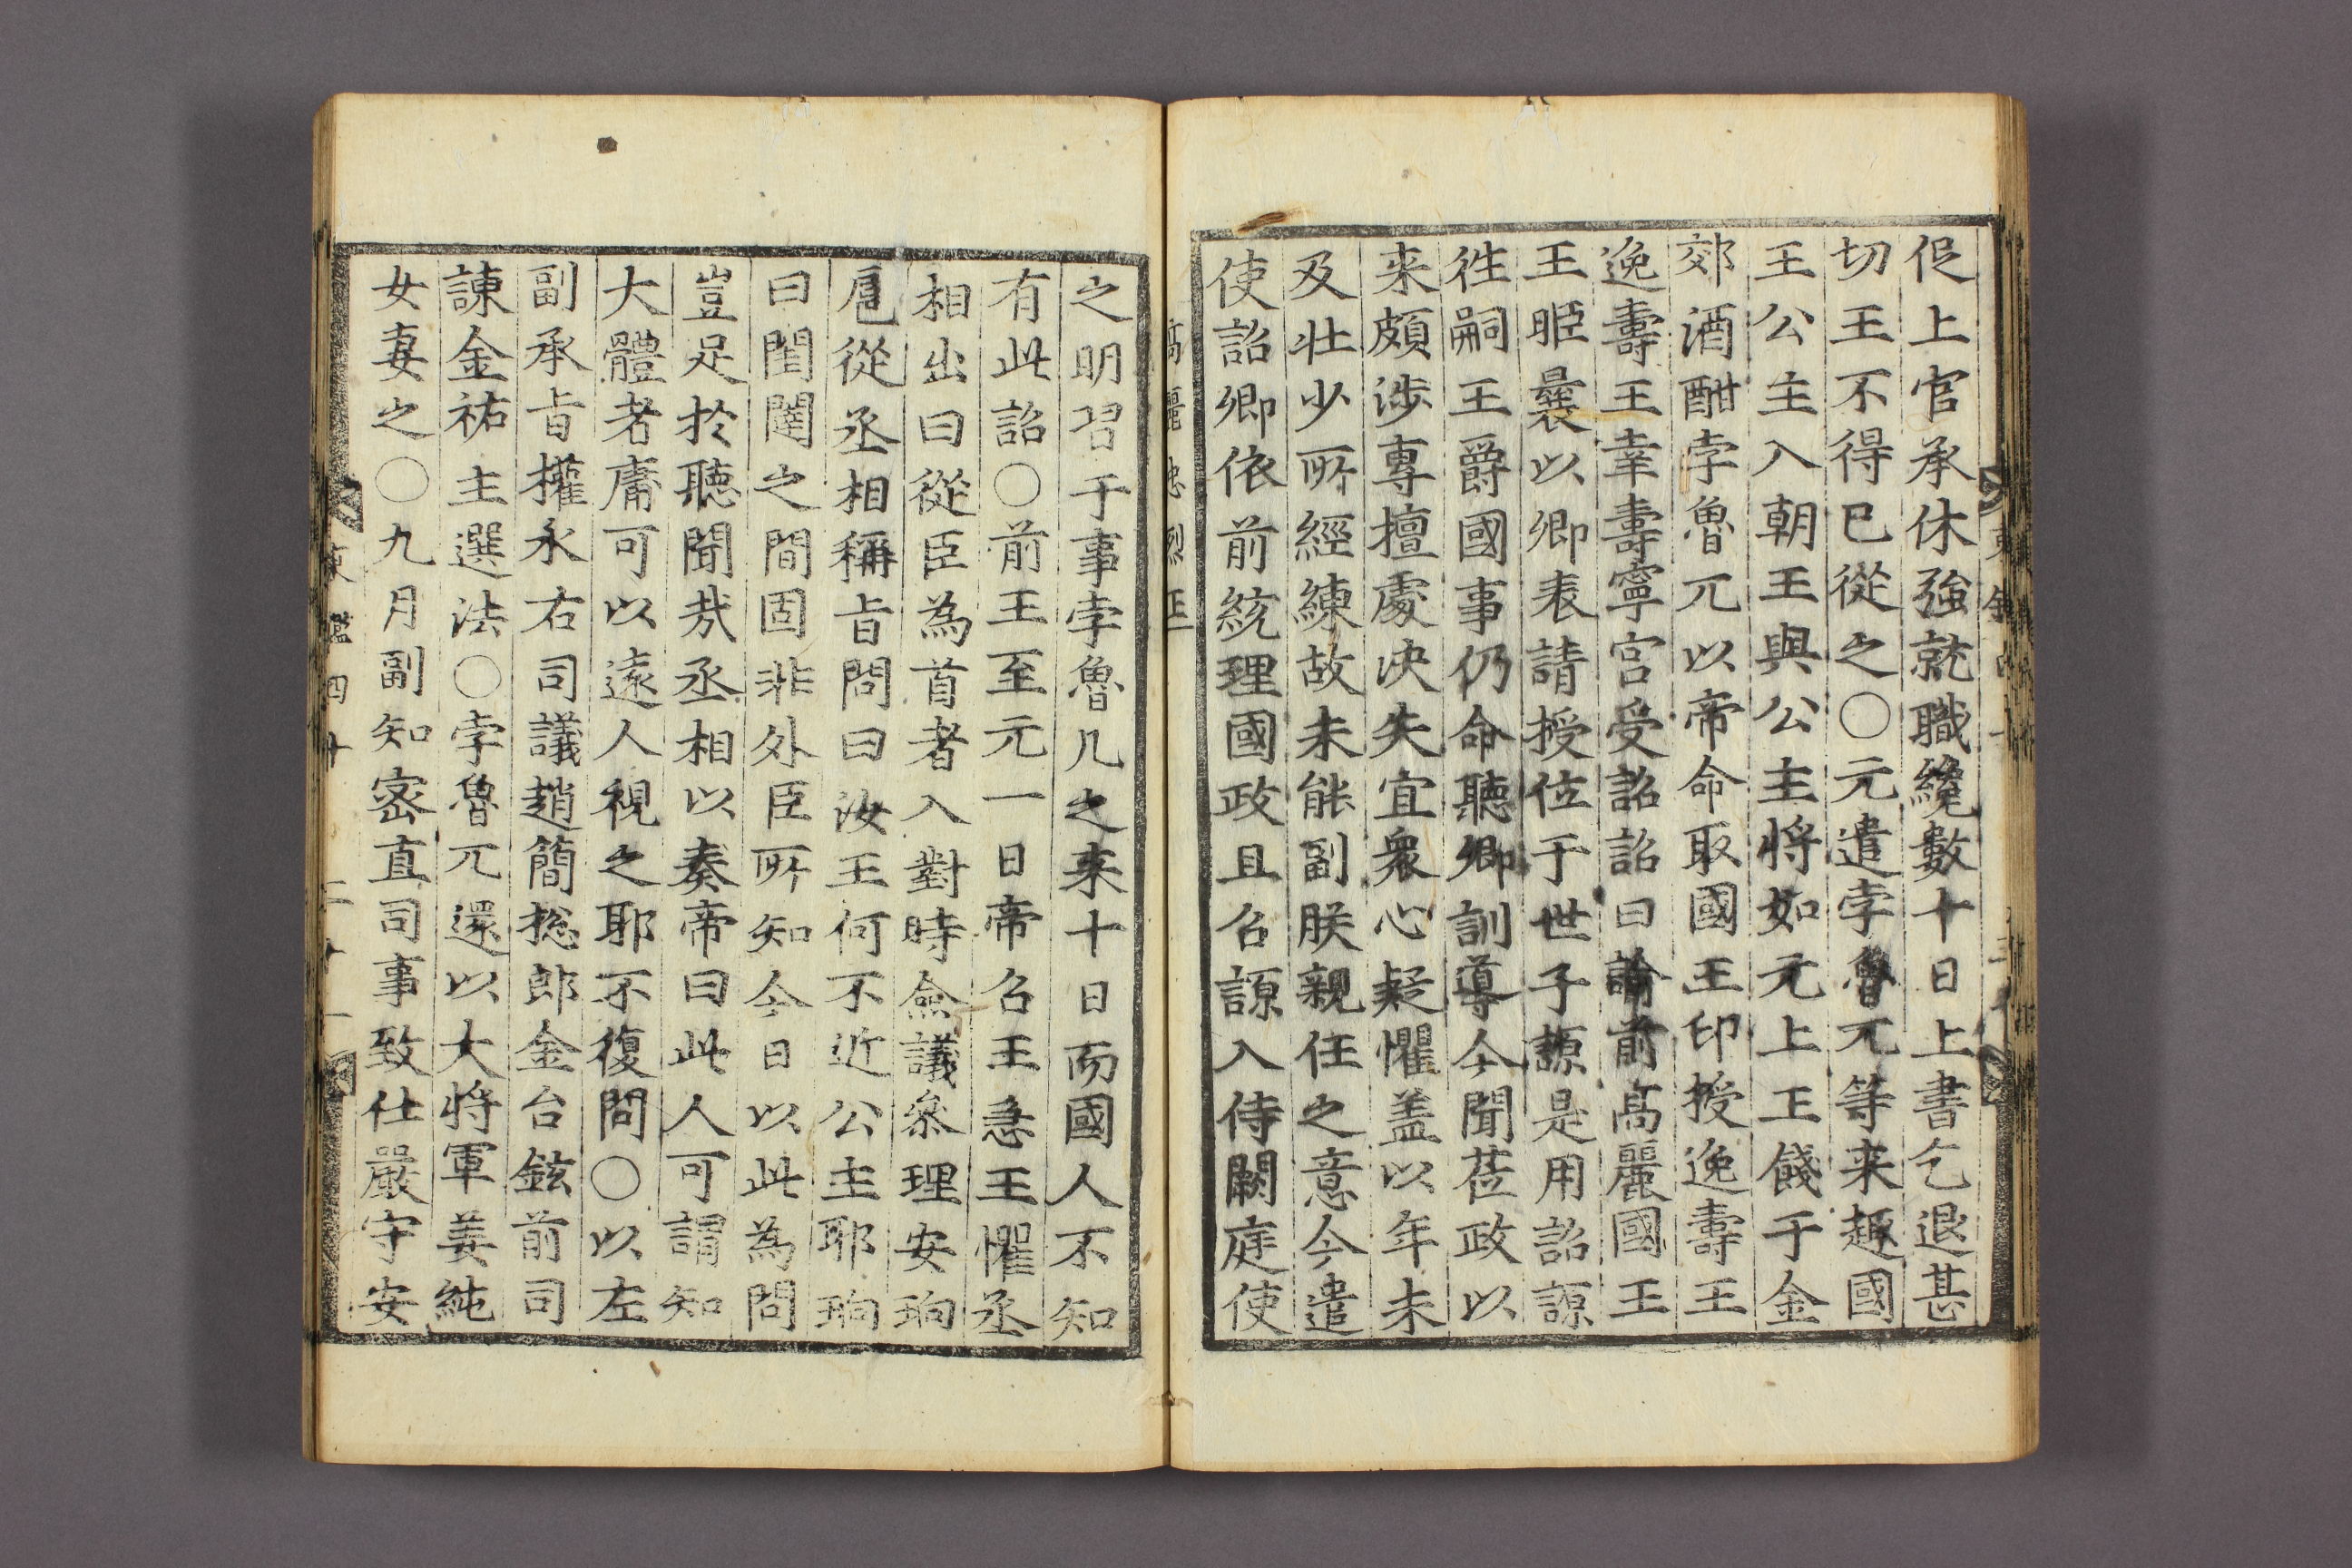 促上官承休強就職纔數十日上書乞退甚
切王不得已從之〇元遣孛魯兀等来趣國
王公主入朝王與公主將如元上王餞于金
郊酒酣孛魯兀以帝命取國王印授逸壽王
逸壽王幸壽寧宮受詔詔曰諭前高麗國王
王昛曩以卿表請授位于世子謜是用詔謜
徃嗣王爵國事仍命聽卿訓導今聞莅政以
来頗涉專擅處决失宜衆心疑懼盖以年未
及壯少所經練故未能副朕親任之意今遣
使詔卿依前統理國政且召謜入侍闕庭使
高麗忠烈王
之明習于事孛魯兀之来十日而國人不知
有此詔〇前王至元一日帝召王急王懼丞
相出曰從臣為首者入對時僉議叅理安珦
扈從丞相稱旨問曰汝王何不近公主耶珦
曰閨闥之間固非外臣所知今日以此為問
豈足於聽聞㢤丞相以奏帝曰此人可謂知
大體者庸可以遠人視之耶不復問〇以左
副承旨權永右司議趙簡揔郎金台鉉前司
諫金祐主選法〇孛魯兀還以大將軍姜純
女妻之〇九月副知密直司事致仕嚴守安
東鑑四十 二十一